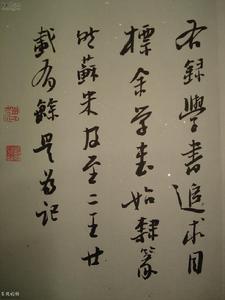 右録學書追求目
標余学书始隸篆
䇿蘇米及至二王廿
載有餘是為記